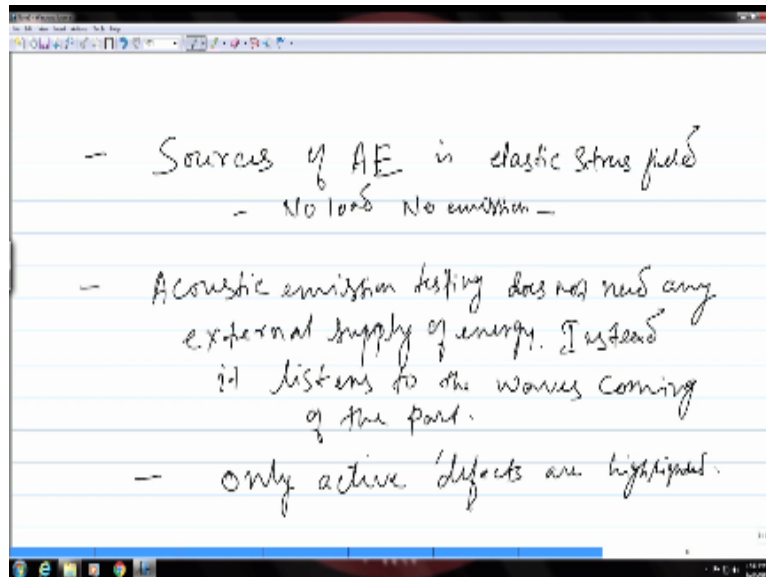 - Sources of AE is elastic stress field
- No load No emission -
- Acoustic emission testing does not need any
external supply of energy. Instead
it listens to the waves coming
of the part.
- only active defects are highlighted.